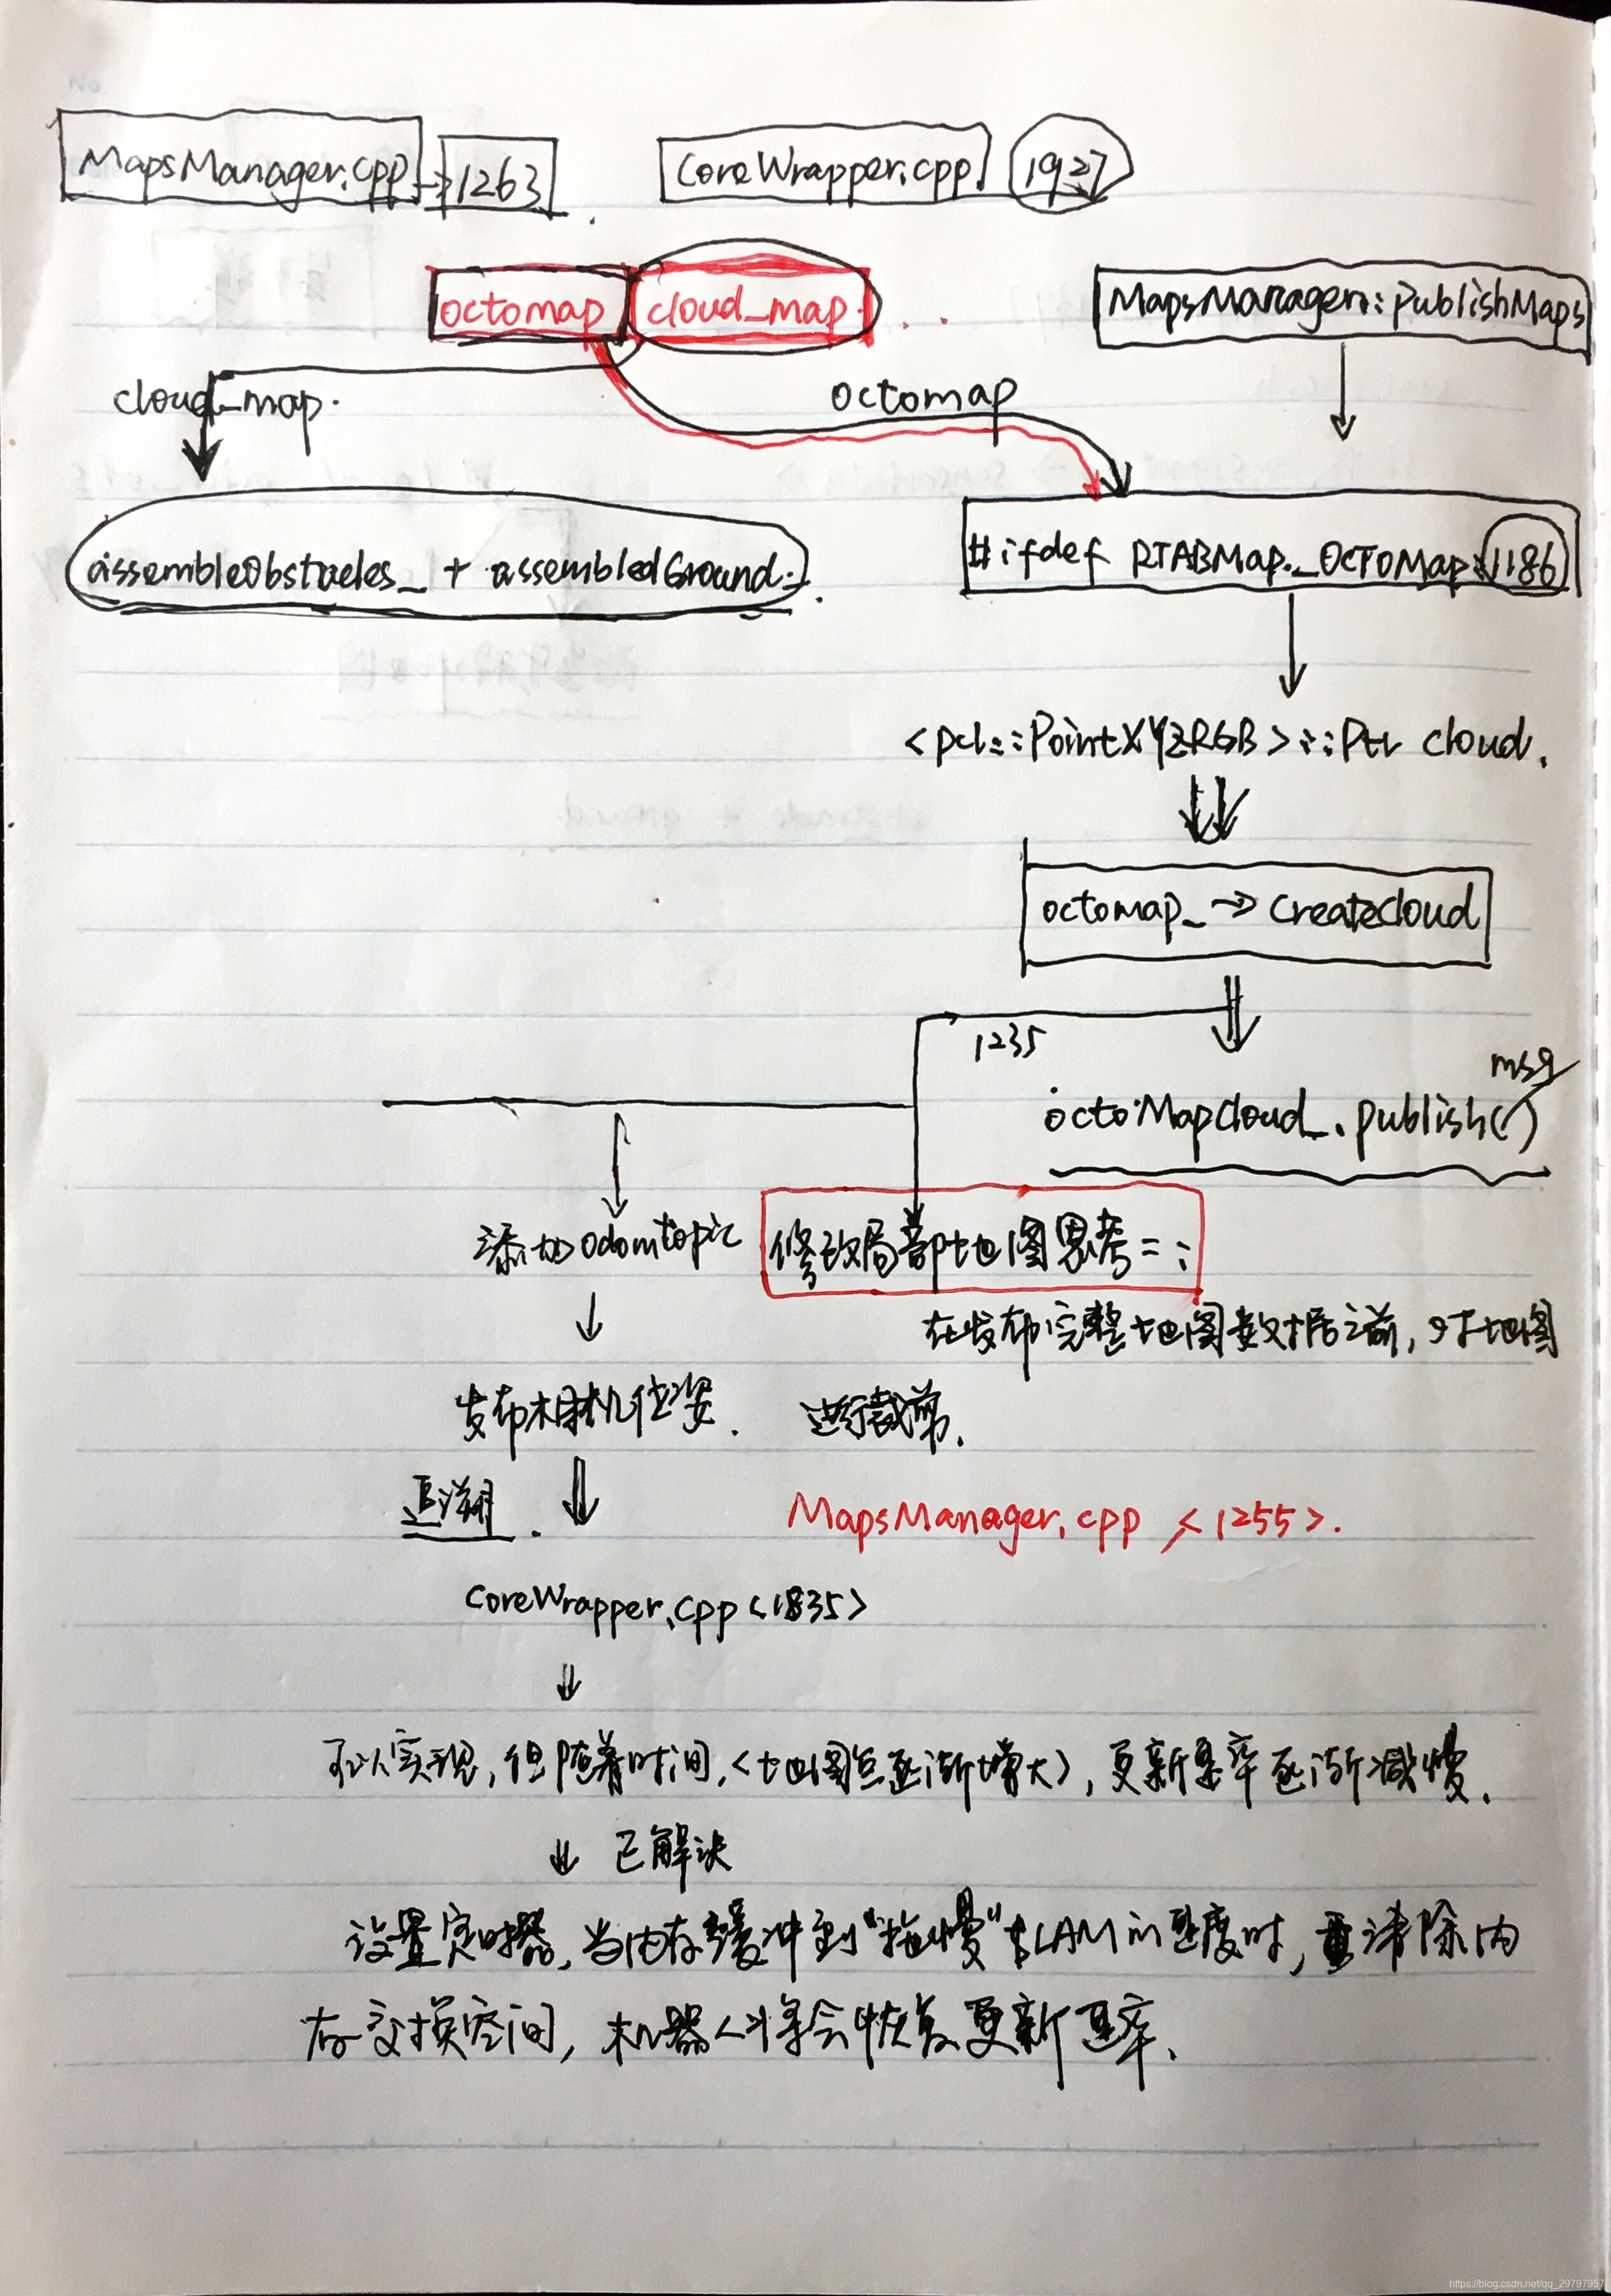 MapsManager.cpp → 1263
CoreWrapper.cpp 1927
octomap cloud_map. . .
MapsManager::publishMaps
cloud_map.
octomap
assembleObstacles_ + assembledGround_.
#ifdef RTABMap_OCTOMap 1186
<pcl::PointXYZRGB>::Ptr cloud.
octomap_ → createcloud
1235
msg
octoMapCloud_.publish()
添加odomtopic
修改局部地图思考二:
在发布完整地图数据之前,对地图
进行裁剪.
发布相机位姿.
追溯.
MapsManager.cpp <1255>.
CoreWrapper.cpp <1835>
可以实现,但随着时间,<地图点逐渐增大>,更新速率逐渐减慢.
已解决
设置定时器,当内存缓冲到“拖慢”SLAM的速度时,清除内
存交换空间,机器人将会恢复更新速率.
https://blog.csdn.net/qq_29797957